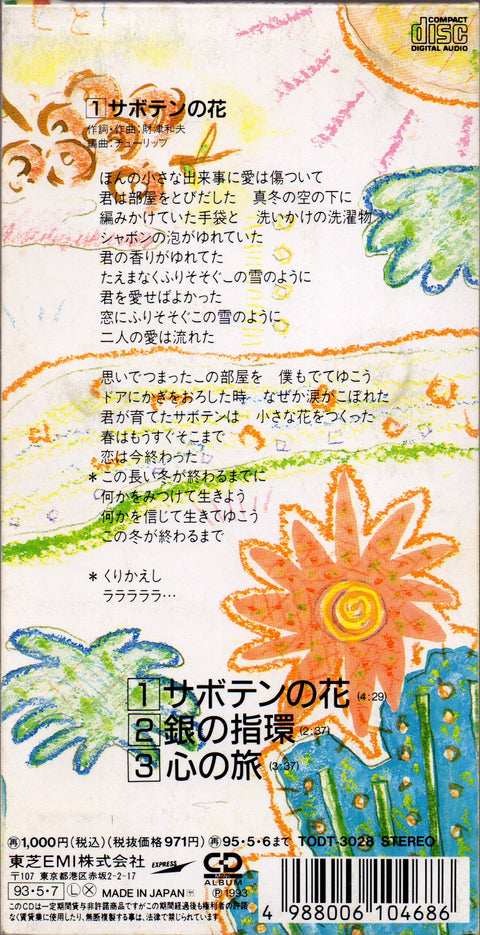 COMPACT
disc
DIGITAL AUDIO
1 サボテンの花
作詞・作曲:財津和夫
編曲:チューリップ
ほんの小さな出来事に愛は傷ついて
君は部屋をとびだした 真冬の空の下に
編みかけていた手袋と 洗いかけの洗濯物
シャボンの泡がゆれていた
君の香りがゆれてた
たえまなくふりそそぐこの雪のように
君を愛せばよかった
窓にふりそそぐこの雪のように
二人の愛は流れた
思いでつまったこの部屋を 僕もでてゆこう
ドアにかぎをおろした時 なぜか涙がこぼれた
君が育てたサボテンは 小さな花をつくった
春はもうすぐそこまで
恋は今終わった
*この長い冬が終わるまでに
何かをみつけて生きよう
何かを信じて生きてゆこう
この冬が終わるまで
*くりかえし
ラララララ…
1 サボテンの花(4:29)
2 銀の指環(2:37)
3 心の旅(3:37)
再1,000円(税込)(税抜価格971円) 再95・5・6まで TODT-3028 STEREO
東芝EMI株式会社 EXPRESS CD MINI ALBUM
〒107 東京都港区赤坂2-2-17
93・5・7 L X MADE IN JAPAN Ⓟ1993
このCDは一定期間貸与非許諾商品ですがこの期間経過後も権利者の許諾
なく賃貸業に使用したり、無断複製する事は、法律で禁じられています。
4 988006 104686